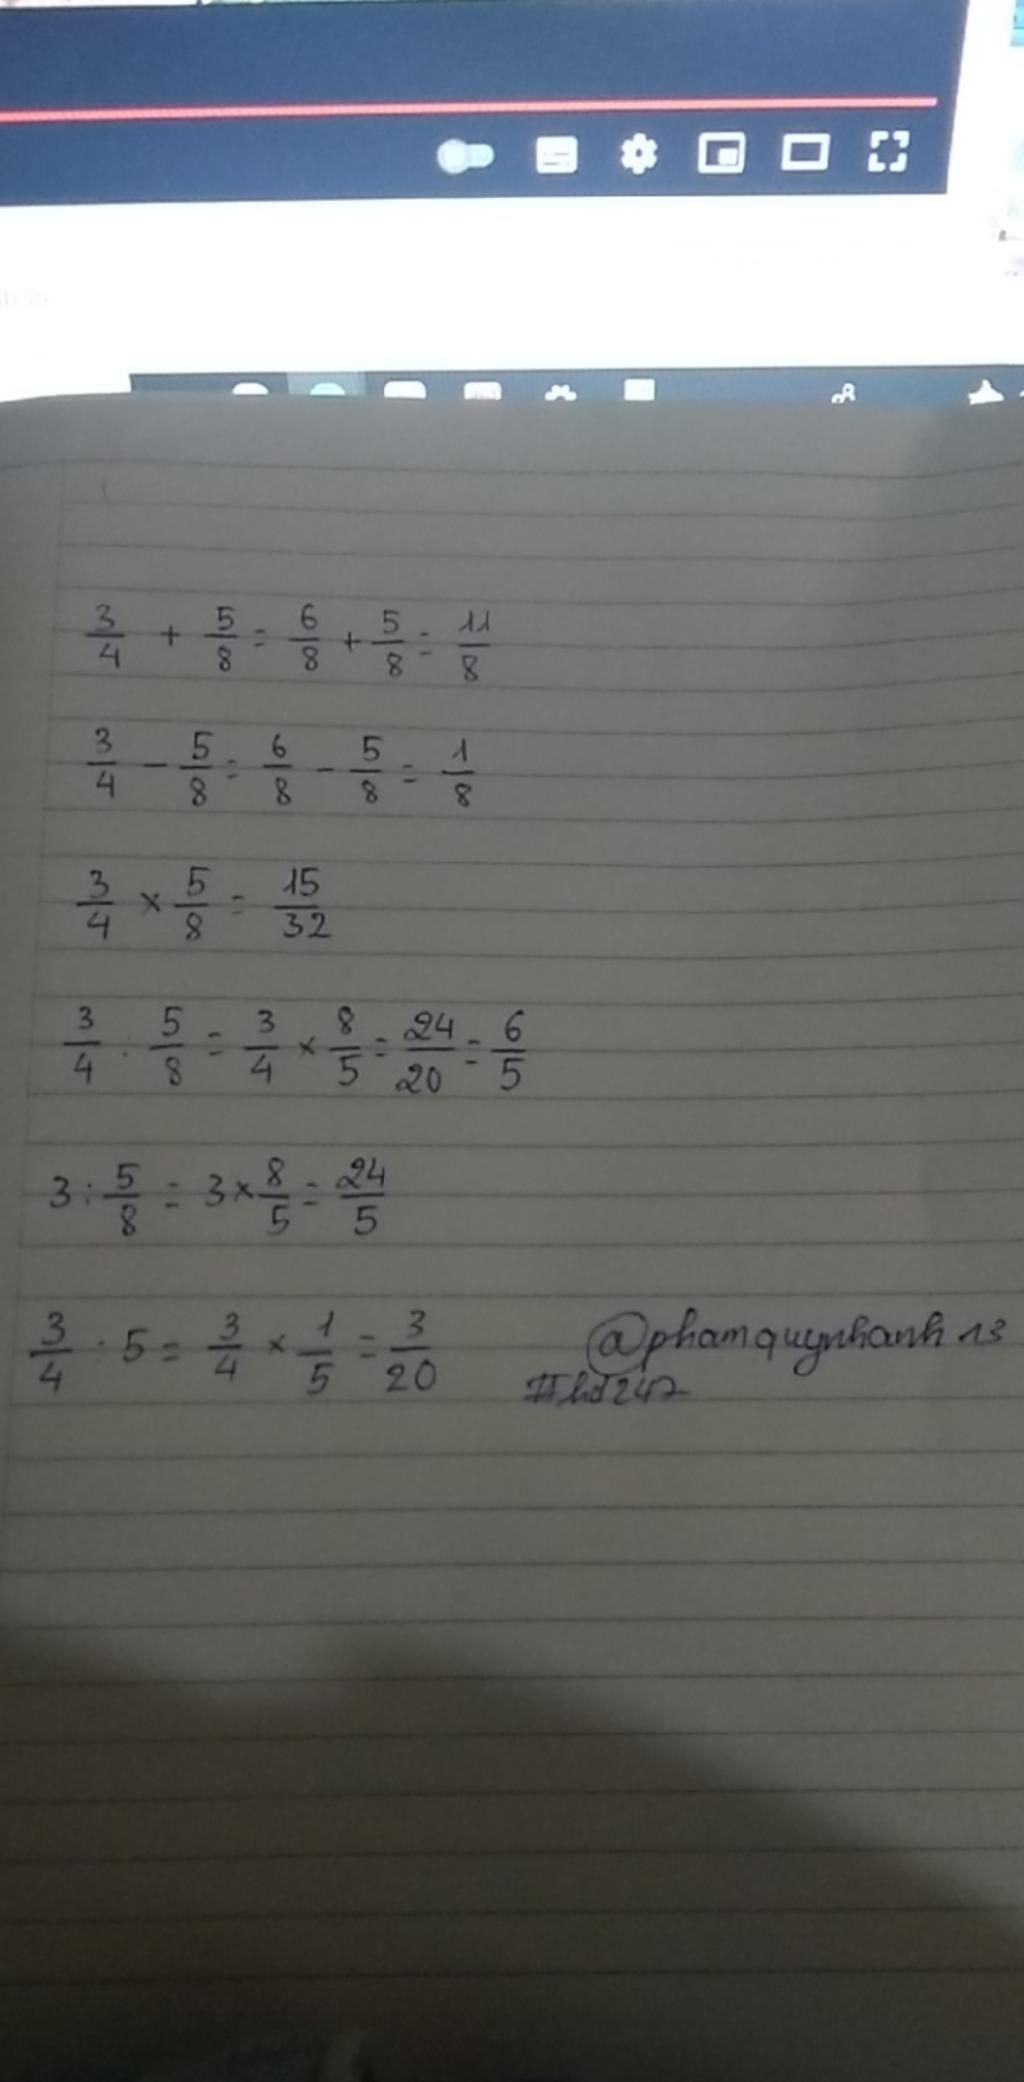 3/4 + 5/8 = 6/8 + 5/8 = 11/8
3/4 - 5/8 = 6/8 - 5/8 = 1/8
3/4 × 5/8 = 15/32
3/4 : 5/8 = 3/4 × 8/5 = 24/20 = 6/5
3 : 5/8 = 3 × 8/5 = 24/5
3/4 : 5 = 3/4 × 1/5 = 3/20
@phamquynhanh13
#hd247